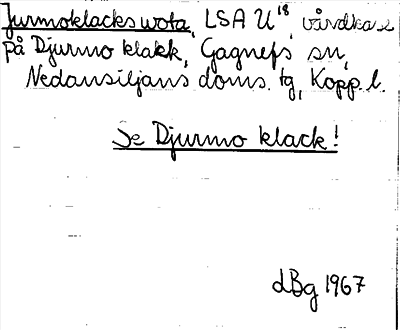 Jurmoklacks wota, LSA U¹⁸, vårdkase
på Djurmo klakk, Gagnefs sn,
Nedansiljans doms. tg, Kopp. l.
Se Djurmo klack!
dBg 1967